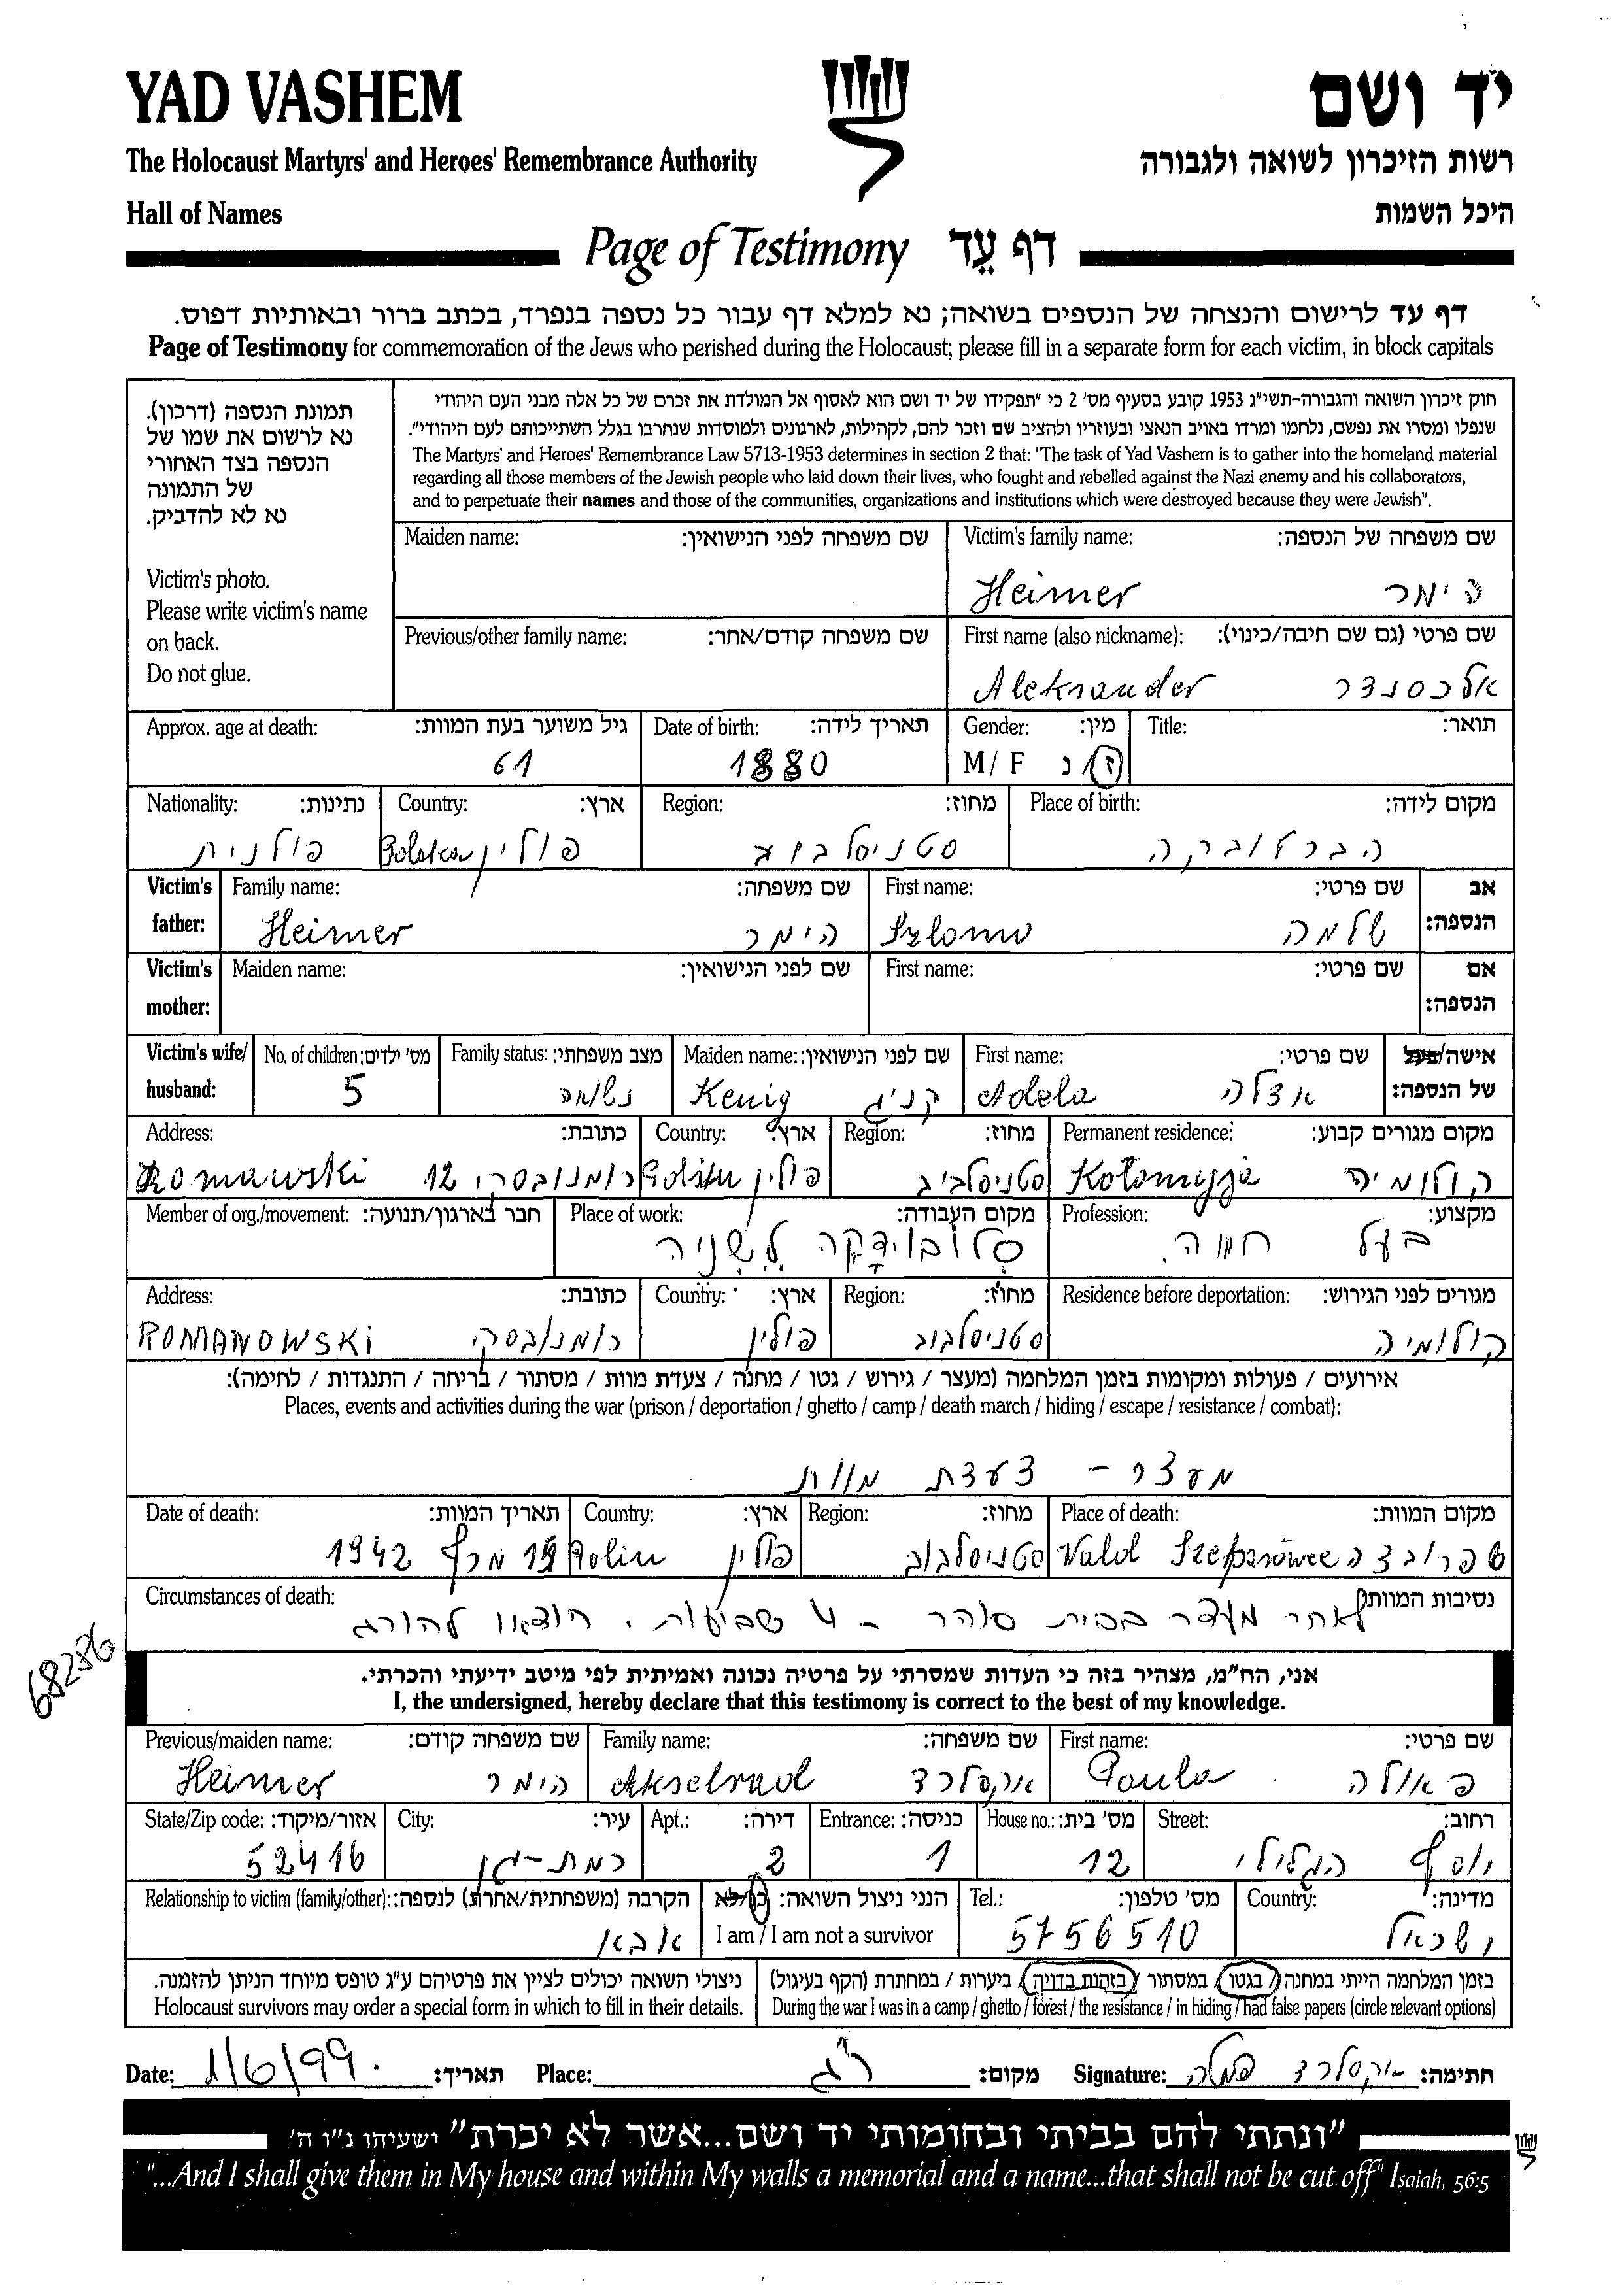 YAD VASHEM
יד ושם
The Holocaust Martyrs' and Heroes' Remembrance Authority
רשות הזיכרון לשואה ולגבורה
Hall of Names
היכל השמות
Page of Testimony דף עֵד
דף עד לרישום והנצחה של הנספים בשואה; נא למלא דף עבור כל נספה בנפרד, בכתב ברור ובאותיות דפוס.
Page of Testimony for commemoration of the Jews who perished during the Holocaust; please fill in a separate form for each victim, in block capitals
תמונת הנספה (דרכון).
נא לרשום את שמו של
הנספה בצד האחורי
של התמונה
נא לא להדביק.
Victim's photo.
Please write victim's name
on back.
Do not glue.
חוק זיכרון השואה והגבורה-תשי"ג 1953 קובע בסעיף מס' 2 כי "תפקידו של יד ושם הוא לאסוף אל המולדת את זכרם של כל אלה מבני העם היהודי
שנפלו ומסרו את נפשם, נלחמו ומרדו באויב הנאצי ובעוזריו ולהציב שם וזכר להם, לקהילות, לארגונים ולמוסדות שנחרבו בגלל השתייכותם לעם היהודי".
The Martyrs' and Heroes' Remembrance Law 5713-1953 determines in section 2 that: "The task of Yad Vashem is to gather into the homeland material
regarding all those members of the Jewish people who laid down their lives, who fought and rebelled against the Nazi enemy and his collaborators,
and to perpetuate their names and those of the communities, organizations and institutions which were destroyed because they were Jewish".
Maiden name: שם משפחה לפני הנישואין: Victim's family name: שם משפחה של הנספה:
Heimer הימר
Previous/other family name: שם משפחה קודם/אחר: First name (also nickname): שם פרטי (גם שם חיבה/כינוי):
Aleksander אלכסנדר
Approx. age at death: גיל משוער בעת המוות: Date of birth: תאריך לידה: Gender: מין: Title: תואר:
61 1880 M/ F ז/נ
Nationality: נתינות: Country: ארץ: Region: מחוז: Place of birth: מקום לידה:
פולנית Polska פולין
Victim's father: Family name: שם משפחה: First name: שם פרטי: אב הנספה:
Heimer הימר שלמה
Victim's mother: Maiden name: שם לפני הנישואין: First name: שם פרטי: אם הנספה:
Victim's wife/ husband: No. of children: מס' ילדים: Family status: מצב משפחתי: Maiden name: שם לפני הנישואין: First name: שם פרטי: אישה/בעל של הנספה:
5 נשוי Kenig קניג Adela אדלה
Address: כתובת: Country: ארץ: Region: מחוז: Permanent residence: מקום מגורים קבוע:
12 פולין Kołomyja קולומיה
Member of org./movement: חבר בארגון/תנועה: Place of work: מקום העבודה: Profession: מקצוע:
סלובוידקה לשניה בעל חווה
Address: כתובת: Country: ארץ: Region: מחוז: Residence before deportation: מגורים לפני הגירוש:
ROMANOWSKI רומנובסקי פולין סטניסלבוב קולומיה
אירועים / פעולות ומקומות בזמן המלחמה (מעצר / גירוש / גטו / מחנה / צעדת מוות / מסתור / בריחה / התנגדות / לחימה):
Places, events and activities during the war (prison / deportation / ghetto / camp / death march / hiding / escape / resistance / combat):
מעצר - צעדת מוות
Date of death: תאריך המוות: Country: ארץ: Region: מחוז: Place of death: מקום המוות:
מרץ 1942 פולין סטניסלבוב
Circumstances of death: נסיבות המוות:
לאחר מעצר בבית סוהר - 4 שבועות, הוצאו להורג
68286
אני, הח"מ, מצהיר בזה כי העדות שמסרתי על פרטיה נכונה ואמיתית לפי מיטב ידיעתי והכרתי.
I, the undersigned, hereby declare that this testimony is correct to the best of my knowledge.
Previous/maiden name: שם משפחה קודם: Family name: שם משפחה: First name: שם פרטי:
Heimer הימר Akselrad אקסלרד Paula פאולה
State/Zip code: אזור/מיקוד: City: עיר: Apt.: דירה: Entrance: כניסה: House no.: מס' בית: Street: רחוב:
52416 רמת-גן 2 1 12 יוסף הגלילי
Relationship to victim (family/other): הקרבה (משפחתית/אחרת) לנספה: הנני ניצול השואה: כן/לא Tel.: מס' טלפון: Country: מדינה:
אבא I am / I am not a survivor 5756510 ישראל
ניצולי השואה יכולים לציין את פרטיהם ע"ג טופס מיוחד הניתן להזמנה.
Holocaust survivors may order a special form in which to fill in their details.
בזמן המלחמה הייתי במחנה / בגטו / במסתור / בזהות בדויה / ביערות / במחתרת (הקף בעיגול)
During the war I was in a camp / ghetto / forest / the resistance / in hiding / had false papers (circle relevant options)
Date: 1/6/99 תאריך: Place: ר"ג מקום: Signature: אקסלרד פאולה חתימה:
"ונתתי להם בביתי ובחומותי יד ושם...אשר לא יכרת" ישעיהו נ"ו ה'
"...And I shall give them in My house and within My walls a memorial and a name...that shall not be cut off" Isaiah, 56:5